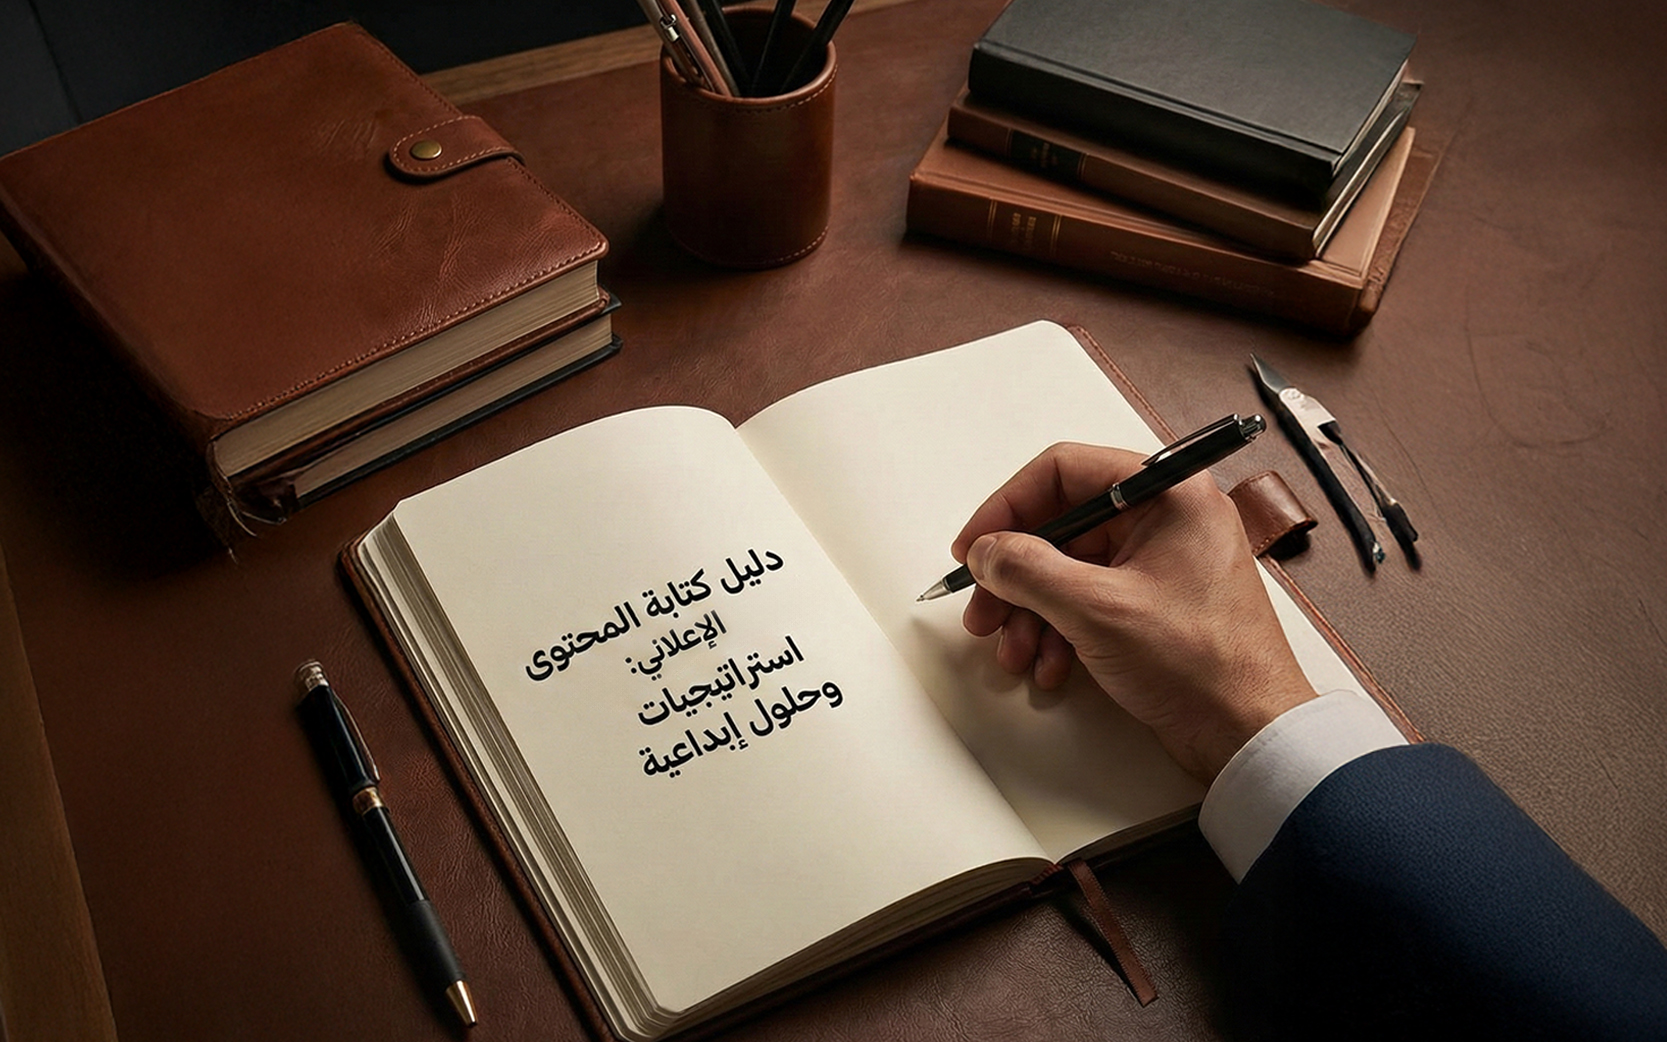 دليل كتابة المحتوى
الإعلاني:
استراتيجيات
وحلول إبداعية